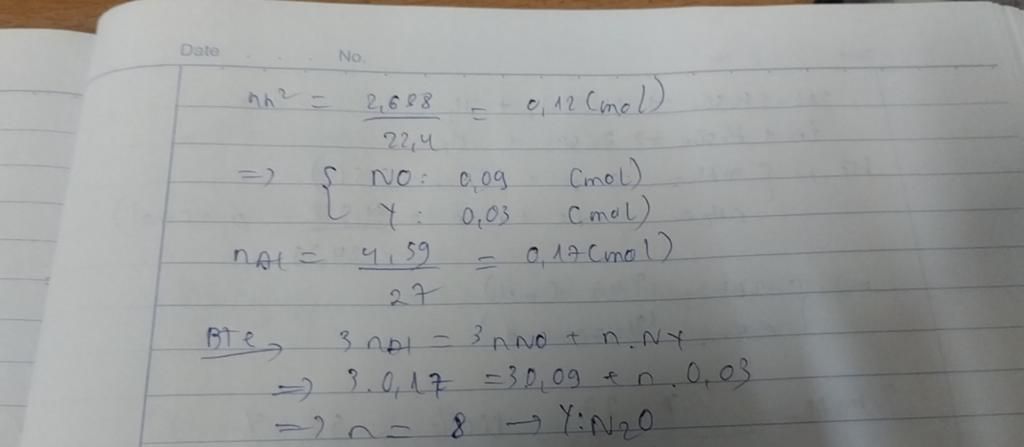 Date No.
nh² = 2,688 / 22,4 = 0,12 (mol)
=> { NO: 0,09 (mol)
Y: 0,03 (mol)
nAl = 4,59 / 27 = 0,17 (mol)
BTe → 3 nAl = 3 nNO + n.NY
=> 3.0,17 = 30,09 + n.0,03
=> n = 8 → Y: N2O